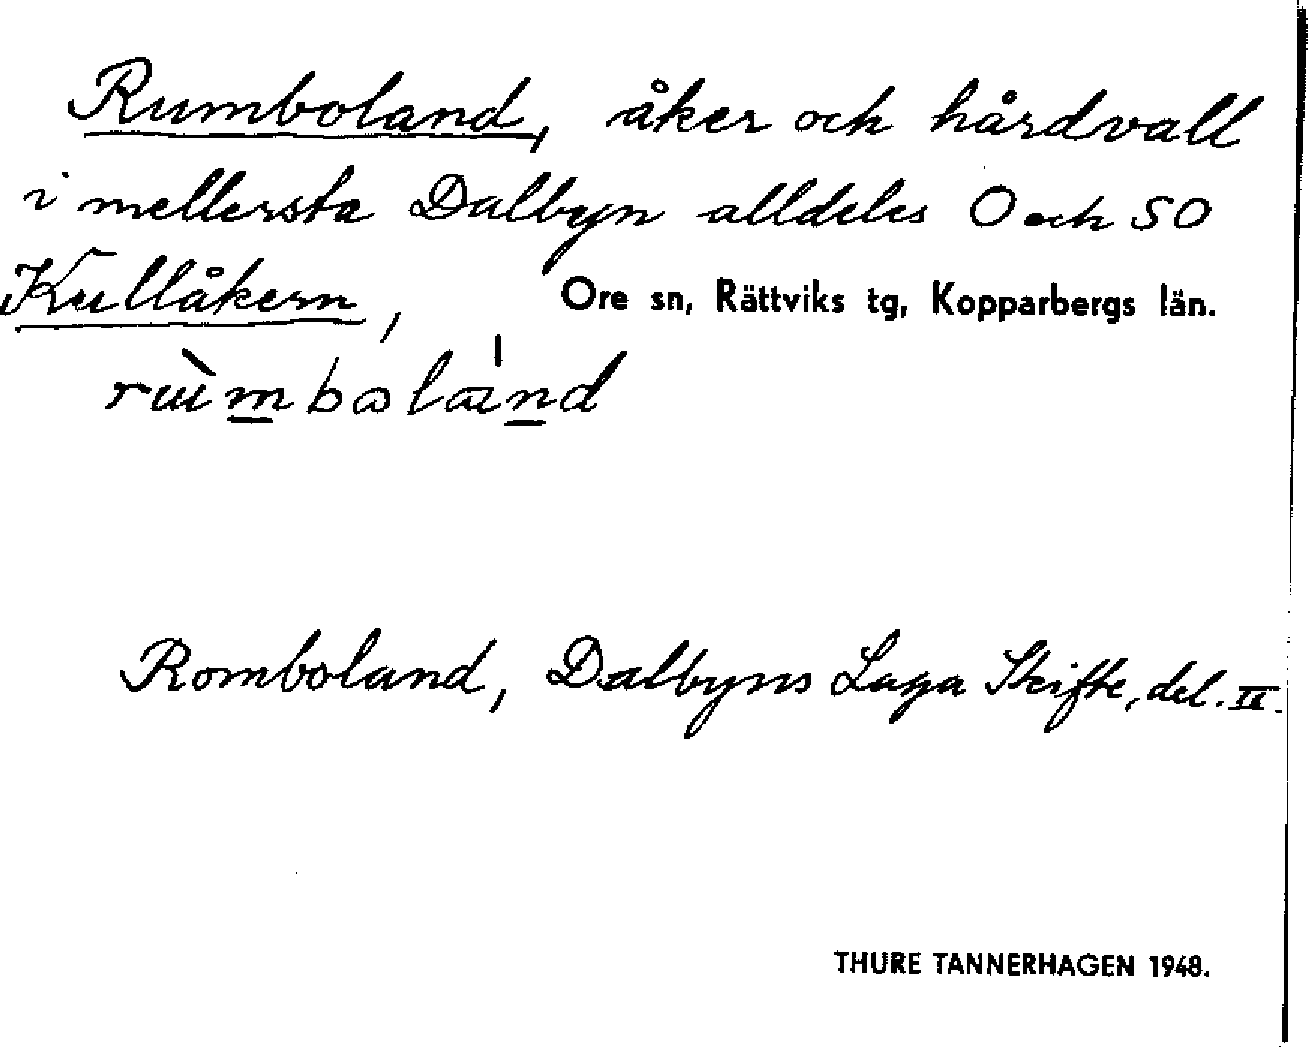 Rumboland, åker och hårdvall
i mellersta Dalbyn alldeles O och SO
Kullåkern, Ore sn, Rättviks tg, Kopparbergs län.
Romboland, Dalbyns Laga Skifte, del. II.
THURE TANNERHAGEN 1948.